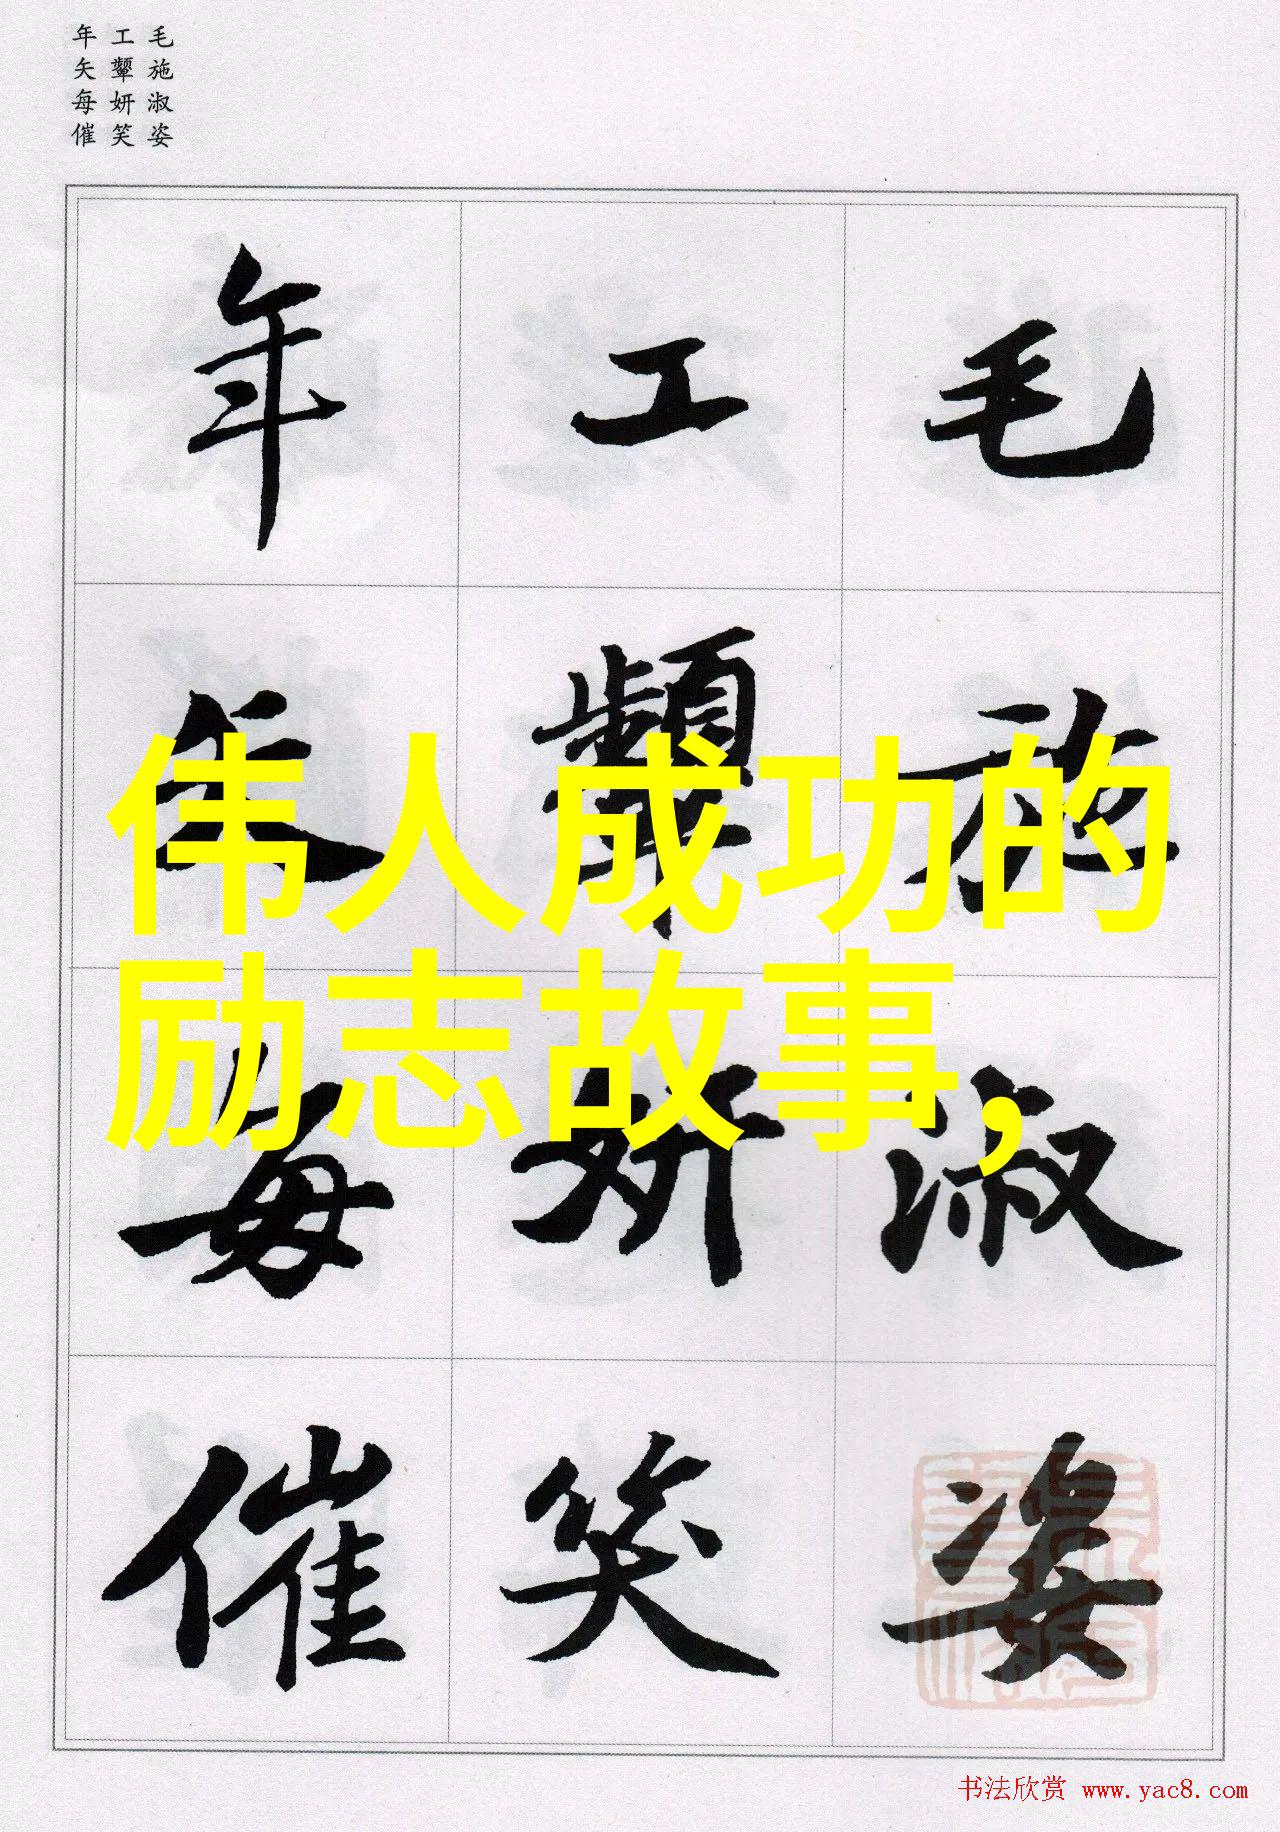 毛施淑姿
工颦妍笑
年矢每催
毛施淑姿
工颦妍笑
年矢每催
伟人成功的
励志故事,
书法欣赏 www.yac8.com